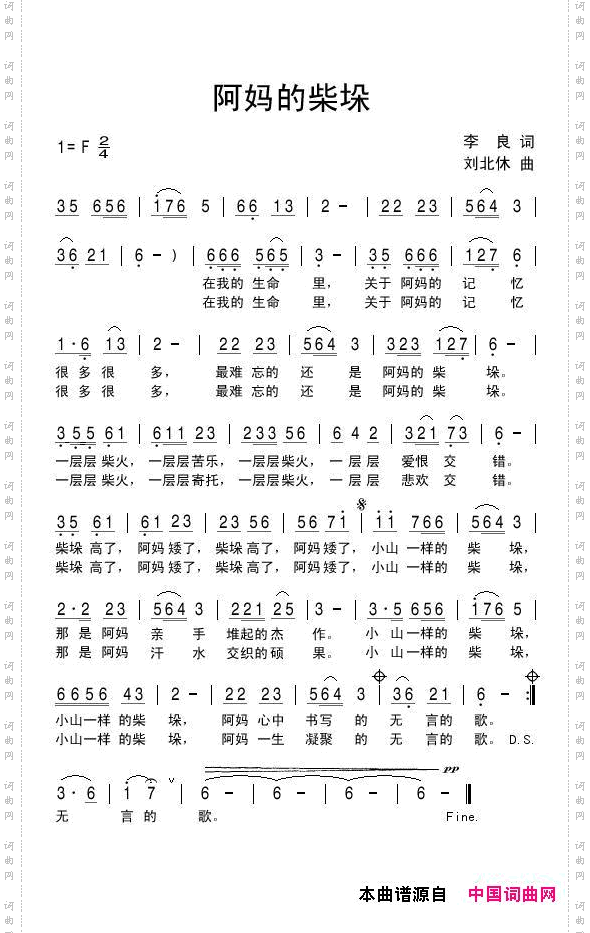 阿妈的柴垛
1=F 2/4
李 良 词
刘北休 曲
35 656 | 176 5 | 66 13 | 2 - | 22 23 | 564 3 |
36 21 | 6 - ) | 666 565 | 3 - | 35 666 | 127 6 |
在我的 生命 里， 关于 阿妈的 记 忆
在我的 生命 里， 关于 阿妈的 记 忆
1·6 13 | 2 - | 22 23 | 564 3 | 323 127 | 6 - |
很 多 很 多， 最难 忘的 还 是 阿妈的 柴 垛。
很 多 很 多， 最难 忘的 还 是 阿妈的 柴 垛。
355 61 | 611 23 | 233 56 | 64 2 | 321 73 | 6 - |
一层层 柴火， 一层层 苦乐， 一层层 柴火， 一 层 层 爱恨 交 错。
一层层 柴火， 一层层 寄托， 一层层 柴火， 一 层 层 悲欢 交 错。
35 61 | 61 23 | 23 56 | 56 71 | 11 766 | 564 3 |
柴垛 高了， 阿妈 矮了， 柴垛 高了， 阿妈 矮了， 小山 一样的 柴 垛，
柴垛 高了， 阿妈 矮了， 柴垛 高了， 阿妈 矮了， 小山 一样的 柴 垛，
2·2 23 | 564 3 | 221 25 | 3 - | 3·5 656 | 176 5 |
那 是 阿妈 亲 手 堆起的 杰 作。 小 山 一样的 柴 垛，
那 是 阿妈 汗 水 交织的 硕 果。 小 山 一样的 柴 垛，
6656 43 | 2 - | 22 23 | 564 3 | 36 21 | 6 - :|
小山一样 的柴 垛， 阿妈 心中 书写 的 无 言的 歌。
小山一样 的柴 垛， 阿妈 一生 凝聚 的 无 言的 歌。 D.S.
pp
3·6 | 1 7 v | 6 - | 6 - | 6 - | 6 - |
无 言 的 歌。 Fine.
本曲谱源自 中国词曲网